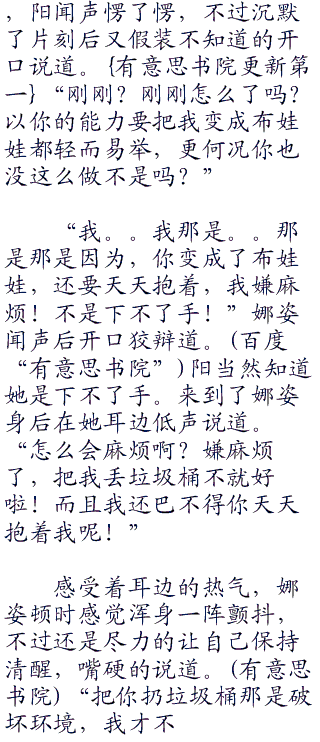 ，阳闻声愣了愣，不过沉默
了片刻后又假装不知道的开
口说道。{有意思书院更新第
一}“刚刚？刚刚怎么了吗？
以你的能力要把我变成布娃
娃都轻而易举，更何况你也
没这么做不是吗？”
“我。。我那是。。那
是那是因为，你变成了布娃
娃，还要天天抱着，我嫌麻
烦！不是下不了手！”娜姿
闻声后开口狡辩道。(百度
“有意思书院”)阳当然知道
她是下不了手。来到了娜姿
身后在她耳边低声说道。
“怎么会麻烦啊？嫌麻烦
了，把我丢垃圾桶不就好
啦！而且我还巴不得你天天
抱着我呢！”
感受着耳边的热气，娜
姿顿时感觉浑身一阵颤抖，
不过还是尽力的让自己保持
清醒，嘴硬的说道。(有意思
书院)“把你扔垃圾桶那是破
坏环境，我才不